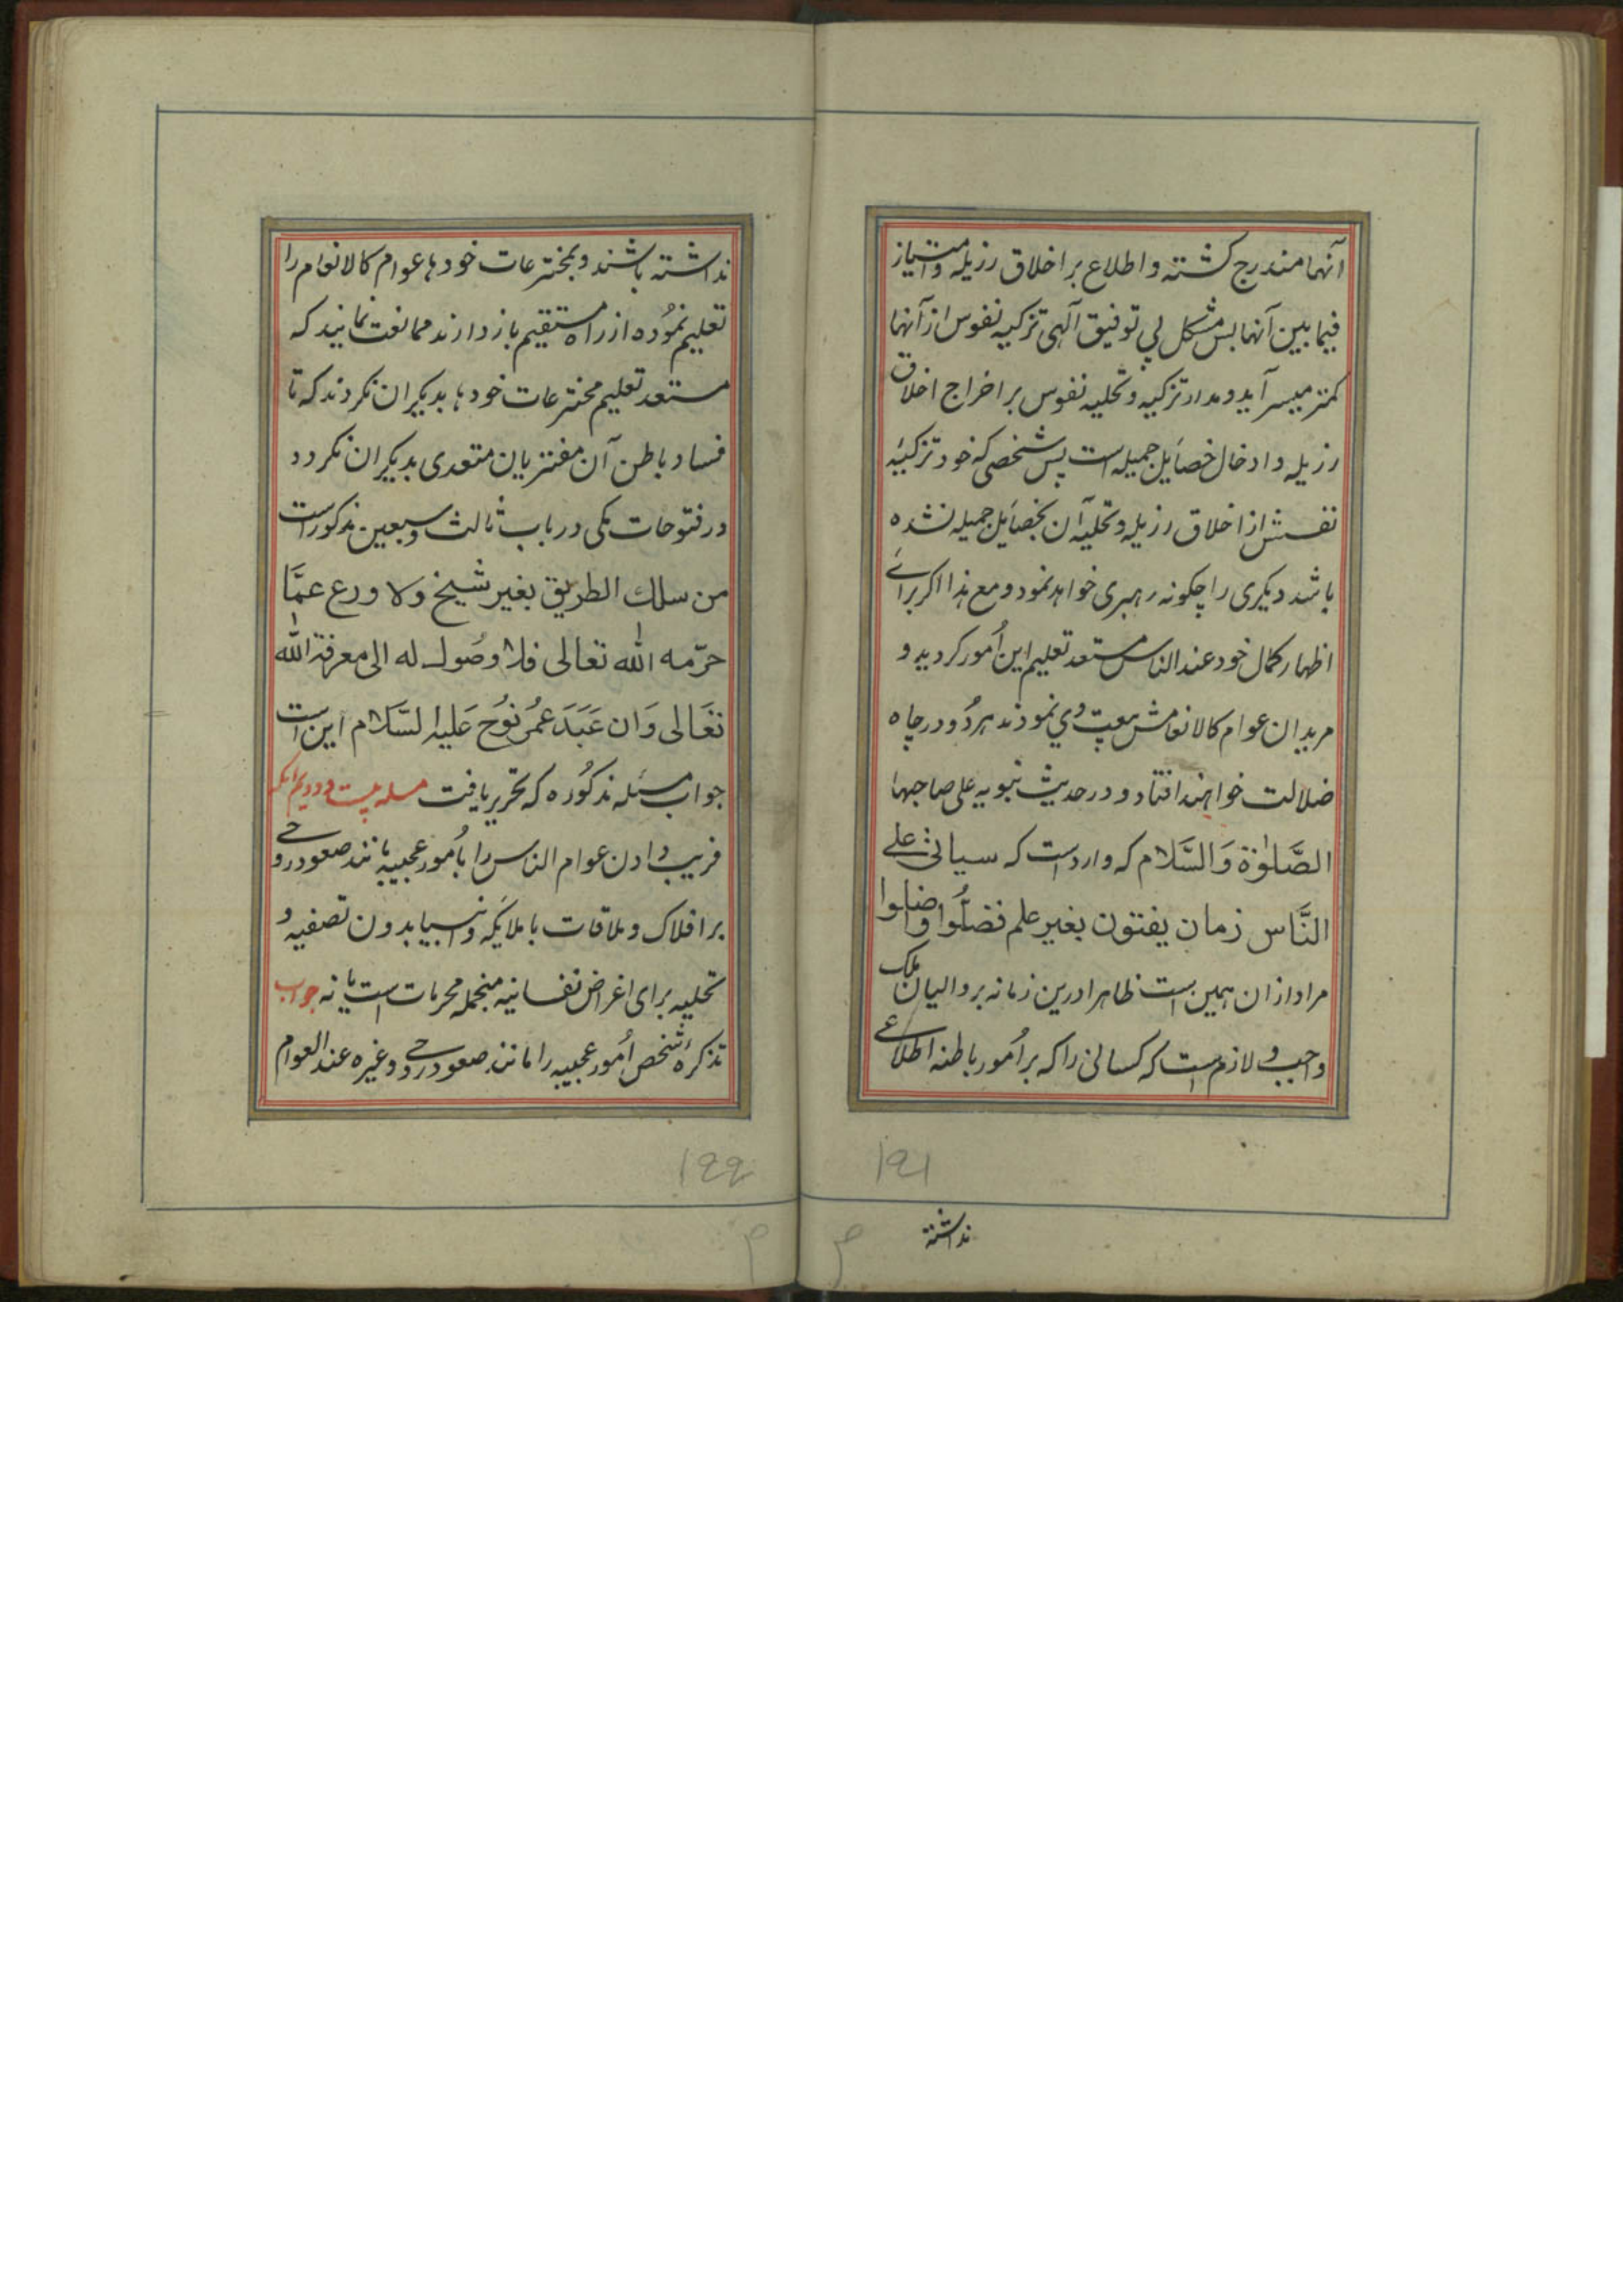 آنها مندرج کشته و اطلاع بر اخلاق رزیله و امتیاز
فیما بین آنها بس مشکل بی توفیق آلهی تزکیه نفوس از آنها
کمتر میسر آید و مدار تزکیه و تحلیه نفوس بر اخراج اخلاق
رزیله و ادخال خصایل جمیله است پس شخصی که خود تزکیۀ
نفسش از اخلاق رزیله و تحلیۀ آن بخصایل جمیله نشده
باشد دیکری را چکونه رهبری خواهد نمود و مع هذا اکر برائے
اظهار کمال خود عند الناس مستعد تعلیم این اُمور کردید و
مریدان عوام کالانعامش بیعت وی نمودند هر دُو در چاه
ضلالت خواهند افتاد و در حدیث نبویه علی صاحبها
الصَّلوٰة وَالسَّلام که وارد است که سیاتی علی
النَّاس زمان یفتون بغیر علم فضلُّوا واضلوا
مراد از ان همین است ظاهرا درین زمانه بر والیان ملک
واجب و لازم است که کسانی را که بر اُمور باطنه اطلاعے
۱۲۱
نداشته
نداشته باشند و بمخترعات خودها عوام کالانعام را
تعلیم نمُوده از راه مستقیم باز دارند ممانعت نمایند که
مستعد تعلیم مخترعات خودها بدیکران نکردند که تا
فساد باطن آن مفتریان متعدی بدیکران نکردد
در فتوحات مکی در باب ثالث و سبعین مذکور است
من سلك الطریق بغیر شیخ ولا ورع عمَّا
حرّمه الله تعالی فلا وصُول له الی معرفة الله
تعَالی وَان عَبَدَ عمُر نوُح عَلیه السَّلام این است
جواب مسئله مذکوُره که تحریر یافت مسله بیست و دویم آنکه
فریب دادن عوام الناس را باُمور عجیبه مانند صعود روحے
بر افلاک و ملاقات با ملایکه و انبیا بدون تصفیه و
تحلیه برای اغراض نفسانیه منجمله محرمات است یا نه جواب
تذکرۀ شخص اُمور عجیبه را مانند صعود روحے و غیره عند العوام
۱۲۲